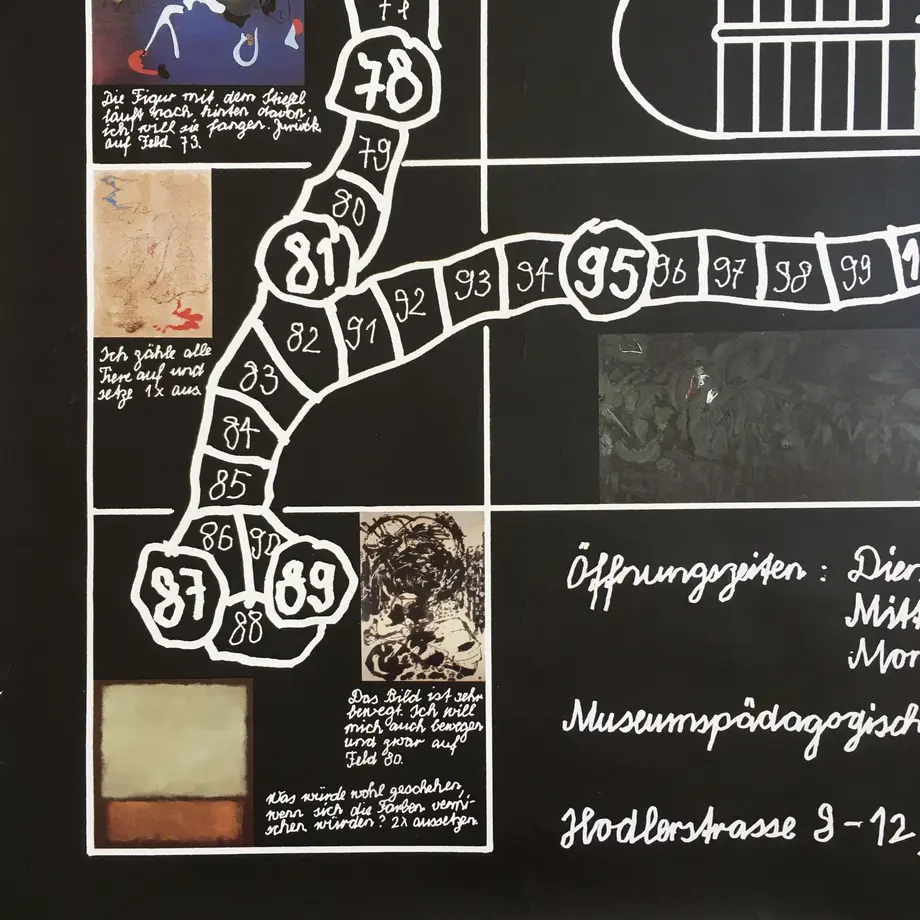 78
Die Figur mit dem Stiefel
läuft nach hinten davon:
ich will sie fangen. Zurück
auf Feld 73.
79
80
81
82
91
92
93
94
95
96
97
98
99
83
84
85
86
90
87
89
88
Ich zähle alle
Tiere auf und
setze 1x aus.
Das Bild ist sehr
bewegt. Ich will
mich auch bewegen
und zwar auf
Feld 80.
Was würde wohl geschehen,
wenn sich die Farben vermi-
schen würden? 2x aussetzen
Öffnungszeiten: Dien
Mitt
Mon
Museumspädagogisch
Hodlerstrasse 8-12,